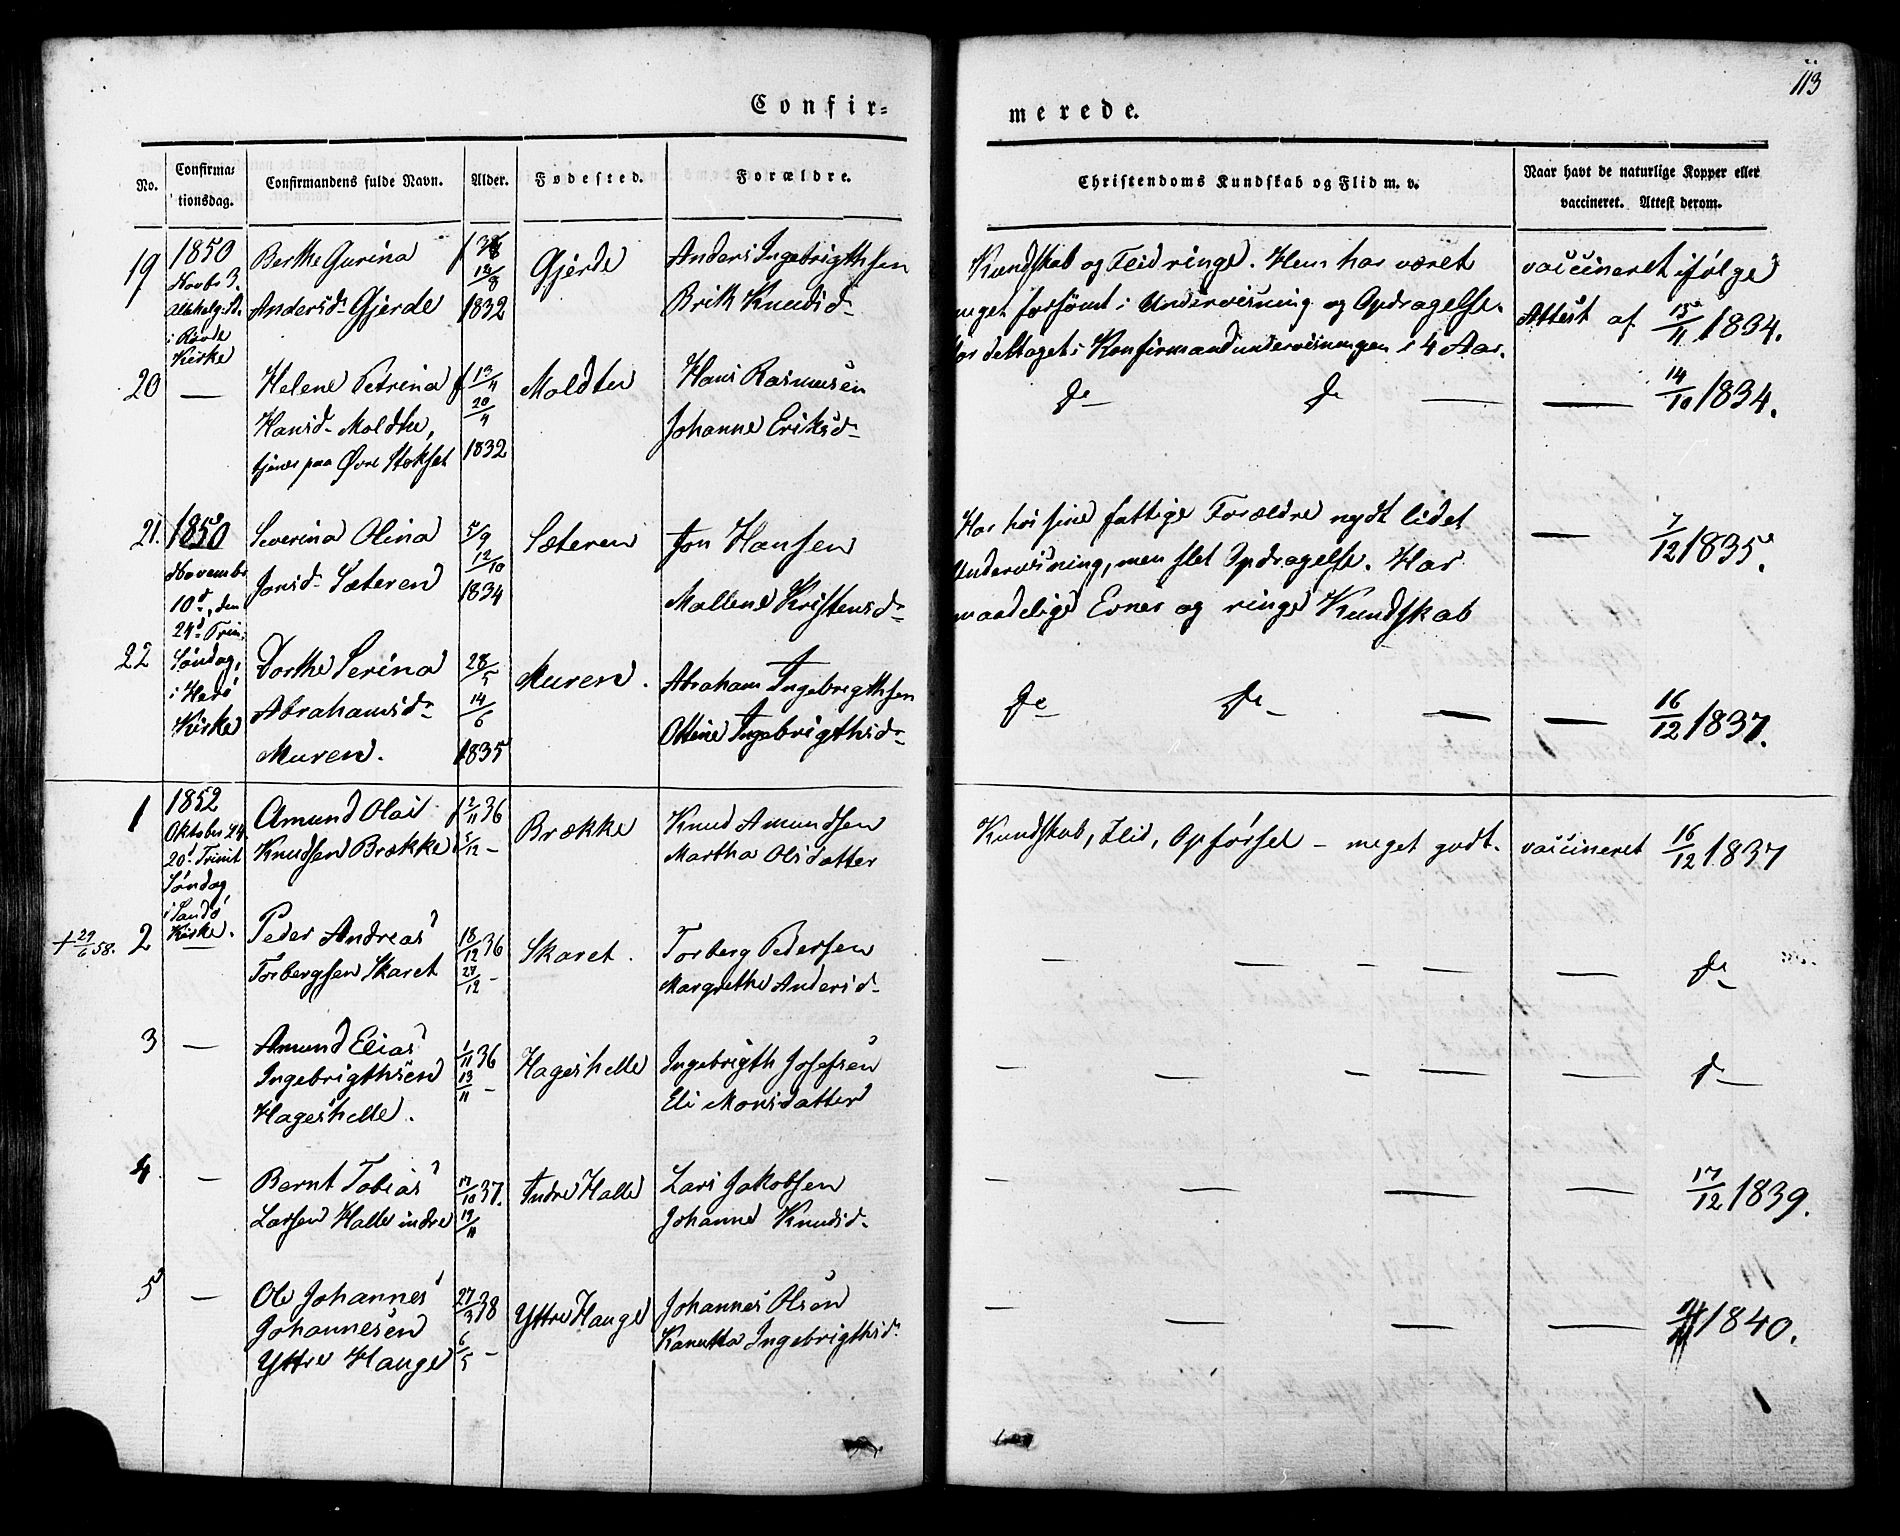 113
Confir=
merede.
No.
Confirma=
tionsdag.
Confirmandens fulde Navn.
Alder.
Fødested.
Forældre.
Christendoms Kundskab og Flid m. v.
Naar havt de naturlige Kopper eller
vaccineret. Attest derom.
19
1850
Novbr 3.
i Røvde
Kirke
Berthe Gurina
Andersd. Gjerde
1832
Gjerde
Anders Ingebrigthsen
Brith Knudsd.
Kundskab og Flid ringe. Hun har været
meget forsømt i Undervisning og Opdragelse.
har deltaget i Konfirmandundervisningen i 4 Aar.
vaccineret ifølge
Attest af 15/11 1834.
20
—
Helene Petrina
Hansd. Moldte,
tjener paa Øvre Stokset
13/4
20/4
1832
Moldten
Hans Rasmusen
Johanne Eriksd.
do do — — 14/10 1834.
21.
1850
Novembr
10d, den
24d Trin.
Søndag,
i Herø
Kirke
Severina Olina
Jonsd. Sæteren
5/9
12/10
1834
Sæteren
Jon Hansen
Mallene Kristensd.
Har hos sine fattige Forældre nydt lidet
Undervisning, men slet Opdragelse. Har
maadelige Evner og ringe Kundskab
— 7/12 1835.
22
Dorthe Serina
Abrahamsd.
Muren.
28/5
14/6
1835
Muren.
Abraham Ingebrigthsen
Oline Ingebrigthsd.
do do — — 16/12 1837.
1
1852
Oktober 24
20d Trinit
Søndag
i Sandø
Kirke.
Amund Olai
Knudsen Brække
2/11 36
5/12 -
Brække
Knud Amundsen
Martha Olsdatter
Kundskab, Flid, Opførsel - meget godt.
vaccineret 16/12 1837
† 29/6 58.
2
—
Peder Andreas
Torbergsen Skaret
18/12 36
27/12 -
Skaret.
Torberg Pedersen
Margrethe Andersd.
— — — — — do
3
—
Amund Elias
Ingebrigthsen
Hageshelle.
1/11 36
13/11 -
Hageshelle
Ingebrigth Josefsen
Eli Monsdatter
— — — — — d—
4
—
Bernt Tobias
Larsen Halle indre
17/10 37.
19/11
Indre Halle
Lars Jakobsen
Johanne Knudsd.
— — — — 17/12 1839.
5
—
Ole Johannes
Johannesen
Yttre Hauge
27/3 38
6/5 -
Yttre Hauge
Johannes Olsen
Kanutta Ingebrigthsd.
— — — — 1840.